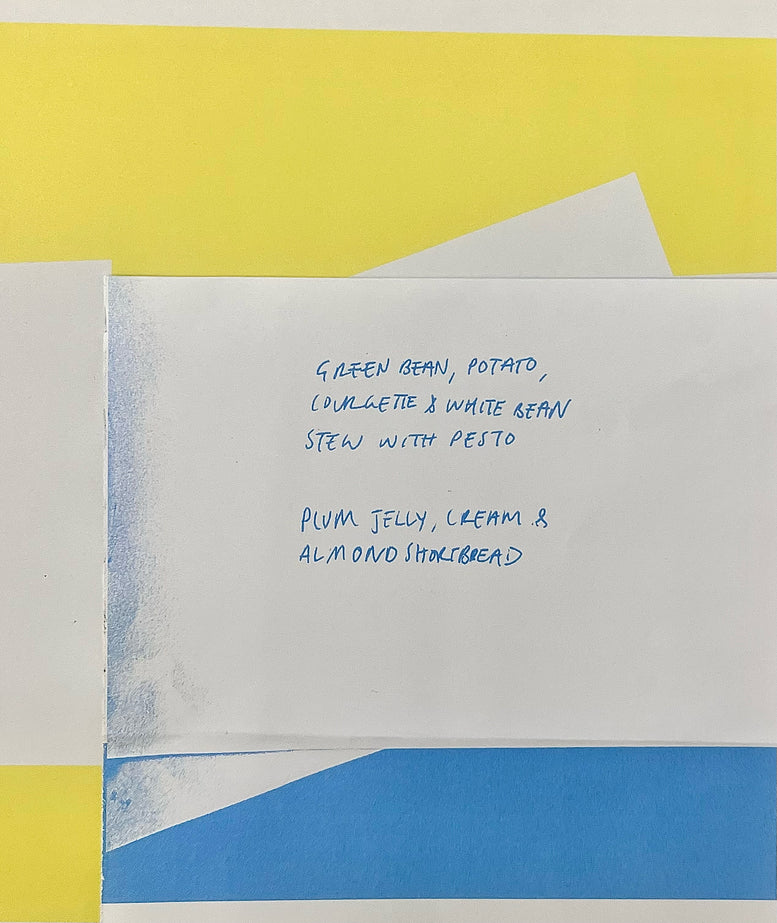 GREEN BEAN, POTATO,
COURGETTE & WHITE BEAN
STEW WITH PESTO
PLUM JELLY, CREAM &
ALMOND SHORTBREAD